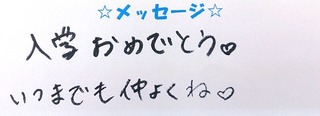 ☆メッセージ☆
入学おめでとう♡
いつまでも仲よくね♡